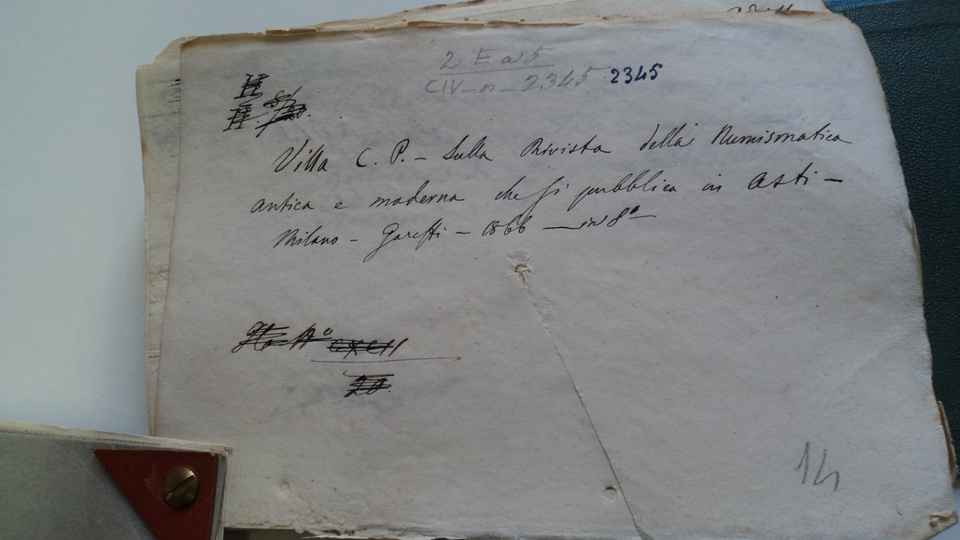 2 E
CIV - n - 2345 2345
H
H
Villa C. P. - Sulla Rivista della Numismatica
antica e moderna che si pubblica in Asti -
Milano - - 1866 - in 8º
Nº CXCII
20
14